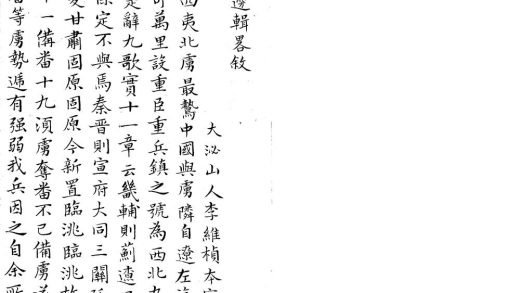 邊輯畧敘
大泌山人李維楨本寧
四夷北虜最驁中國與虜隣自遼左
萬里設重臣重兵鎮之號為西北九
楚辭九歌實十一章云畿輔則薊遼
保定不與焉秦晉則宣府大同三關
夏甘肅固原固原今新置臨洮臨洮故
一備番十九須虜奪番不已備虜
等虜勢遞有强弱我兵因之自余所